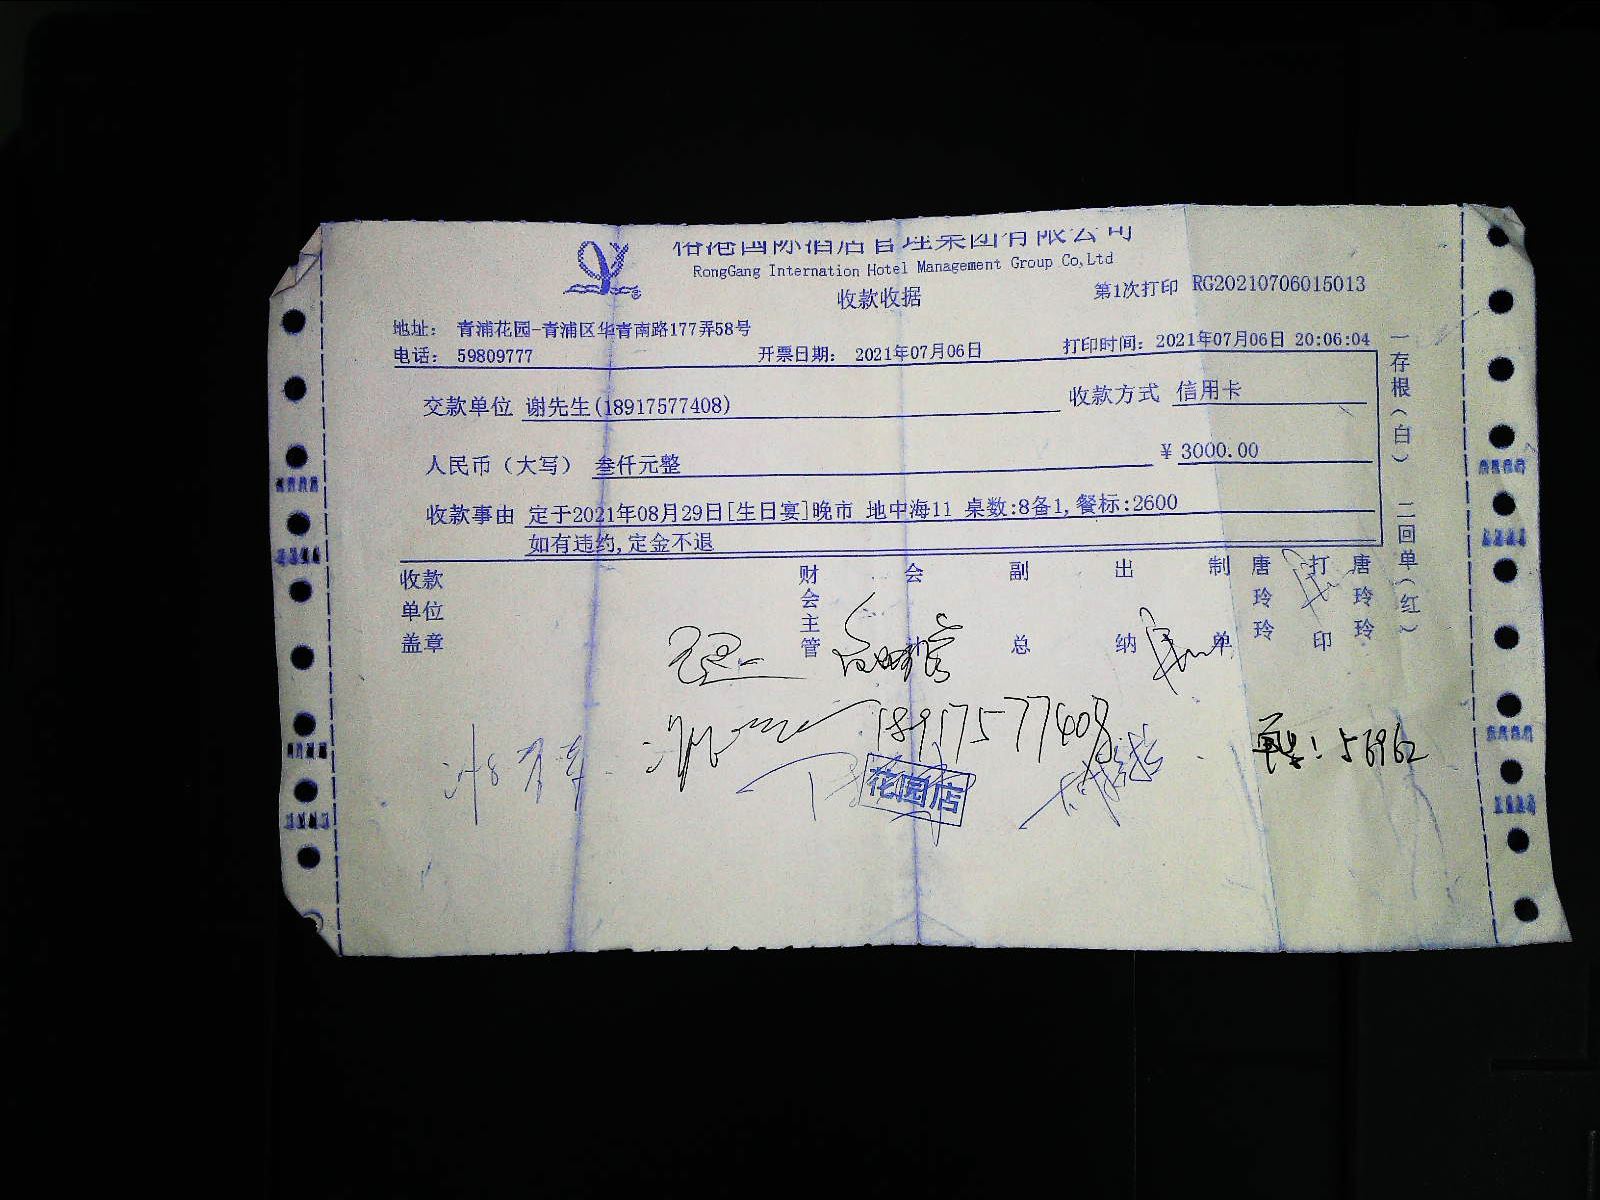 港国际酒店管理集团有限公司
RongGang Internation Hotel Management Group Co,Ltd
收款收据
第1次打印 RG20210706015013
地址: 青浦花园-青浦区华青南路177弄58号
电话: 59809777 开票日期: 2021年07月06日 打印时间: 2021年07月06日 20:06:04
交款单位 谢先生(18917577408) 收款方式 信用卡
人民币(大写) 叁仟元整 ¥ 3000.00
收款事由 定于2021年08月29日[生日宴]晚市 地中海11 桌数:8备1,餐标:2600
如有违约,定金不退
收款单位盖章 财会主管 会计 副总 出纳 制单 唐玲玲 打印 唐玲玲
一存根(白) 二回单(红)
18917577408
56962
花园店